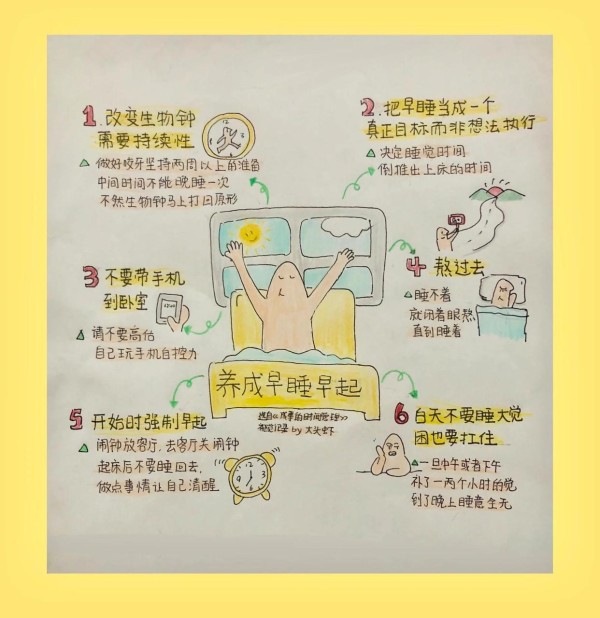 1. 改变生物钟
需要持续性
做好咬牙坚持两周以上的准备
中间时间不能晚睡一次
不然生物钟马上打回原形
2. 把早睡当成一个
真正目标而非想法执行
决定睡觉时间
倒推出上床的时间
3 不要带手机
到卧室
请不要高估
自己玩手机自控力
4 熬过去
睡不着
就闭着眼熬
直到睡着
养成早睡早起
选自《成事的时间管理》
视觉记录 by 大头虾
5 开始时强制早起
闹钟放客厅,去客厅关闹钟
起床后不要睡回去,
做点事情让自己清醒
6 白天不要睡大觉
困也要扛住
一旦中午或者下午
补了一两个小时的觉
到了晚上睡意全无